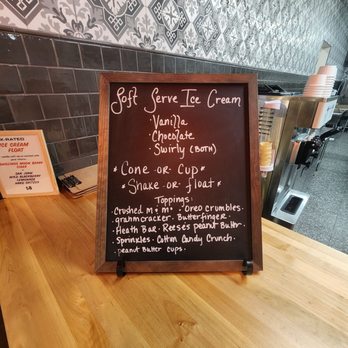 Soft Serve Ice Cream
Vanilla
Chocolate
Swirly (BOTH)
* Cone or Cup *
* Shake or float *
Toppings:
Crushed m+m's · Oreo crumbles
grahmcracker · Butterfinger
· Heath Bar · Reese's peanut Butter
· Sprinkles · Cotton Candy Crunch
· peanut Butter cups ·
X-RATED
ICE CREAM
FLOAT
$8